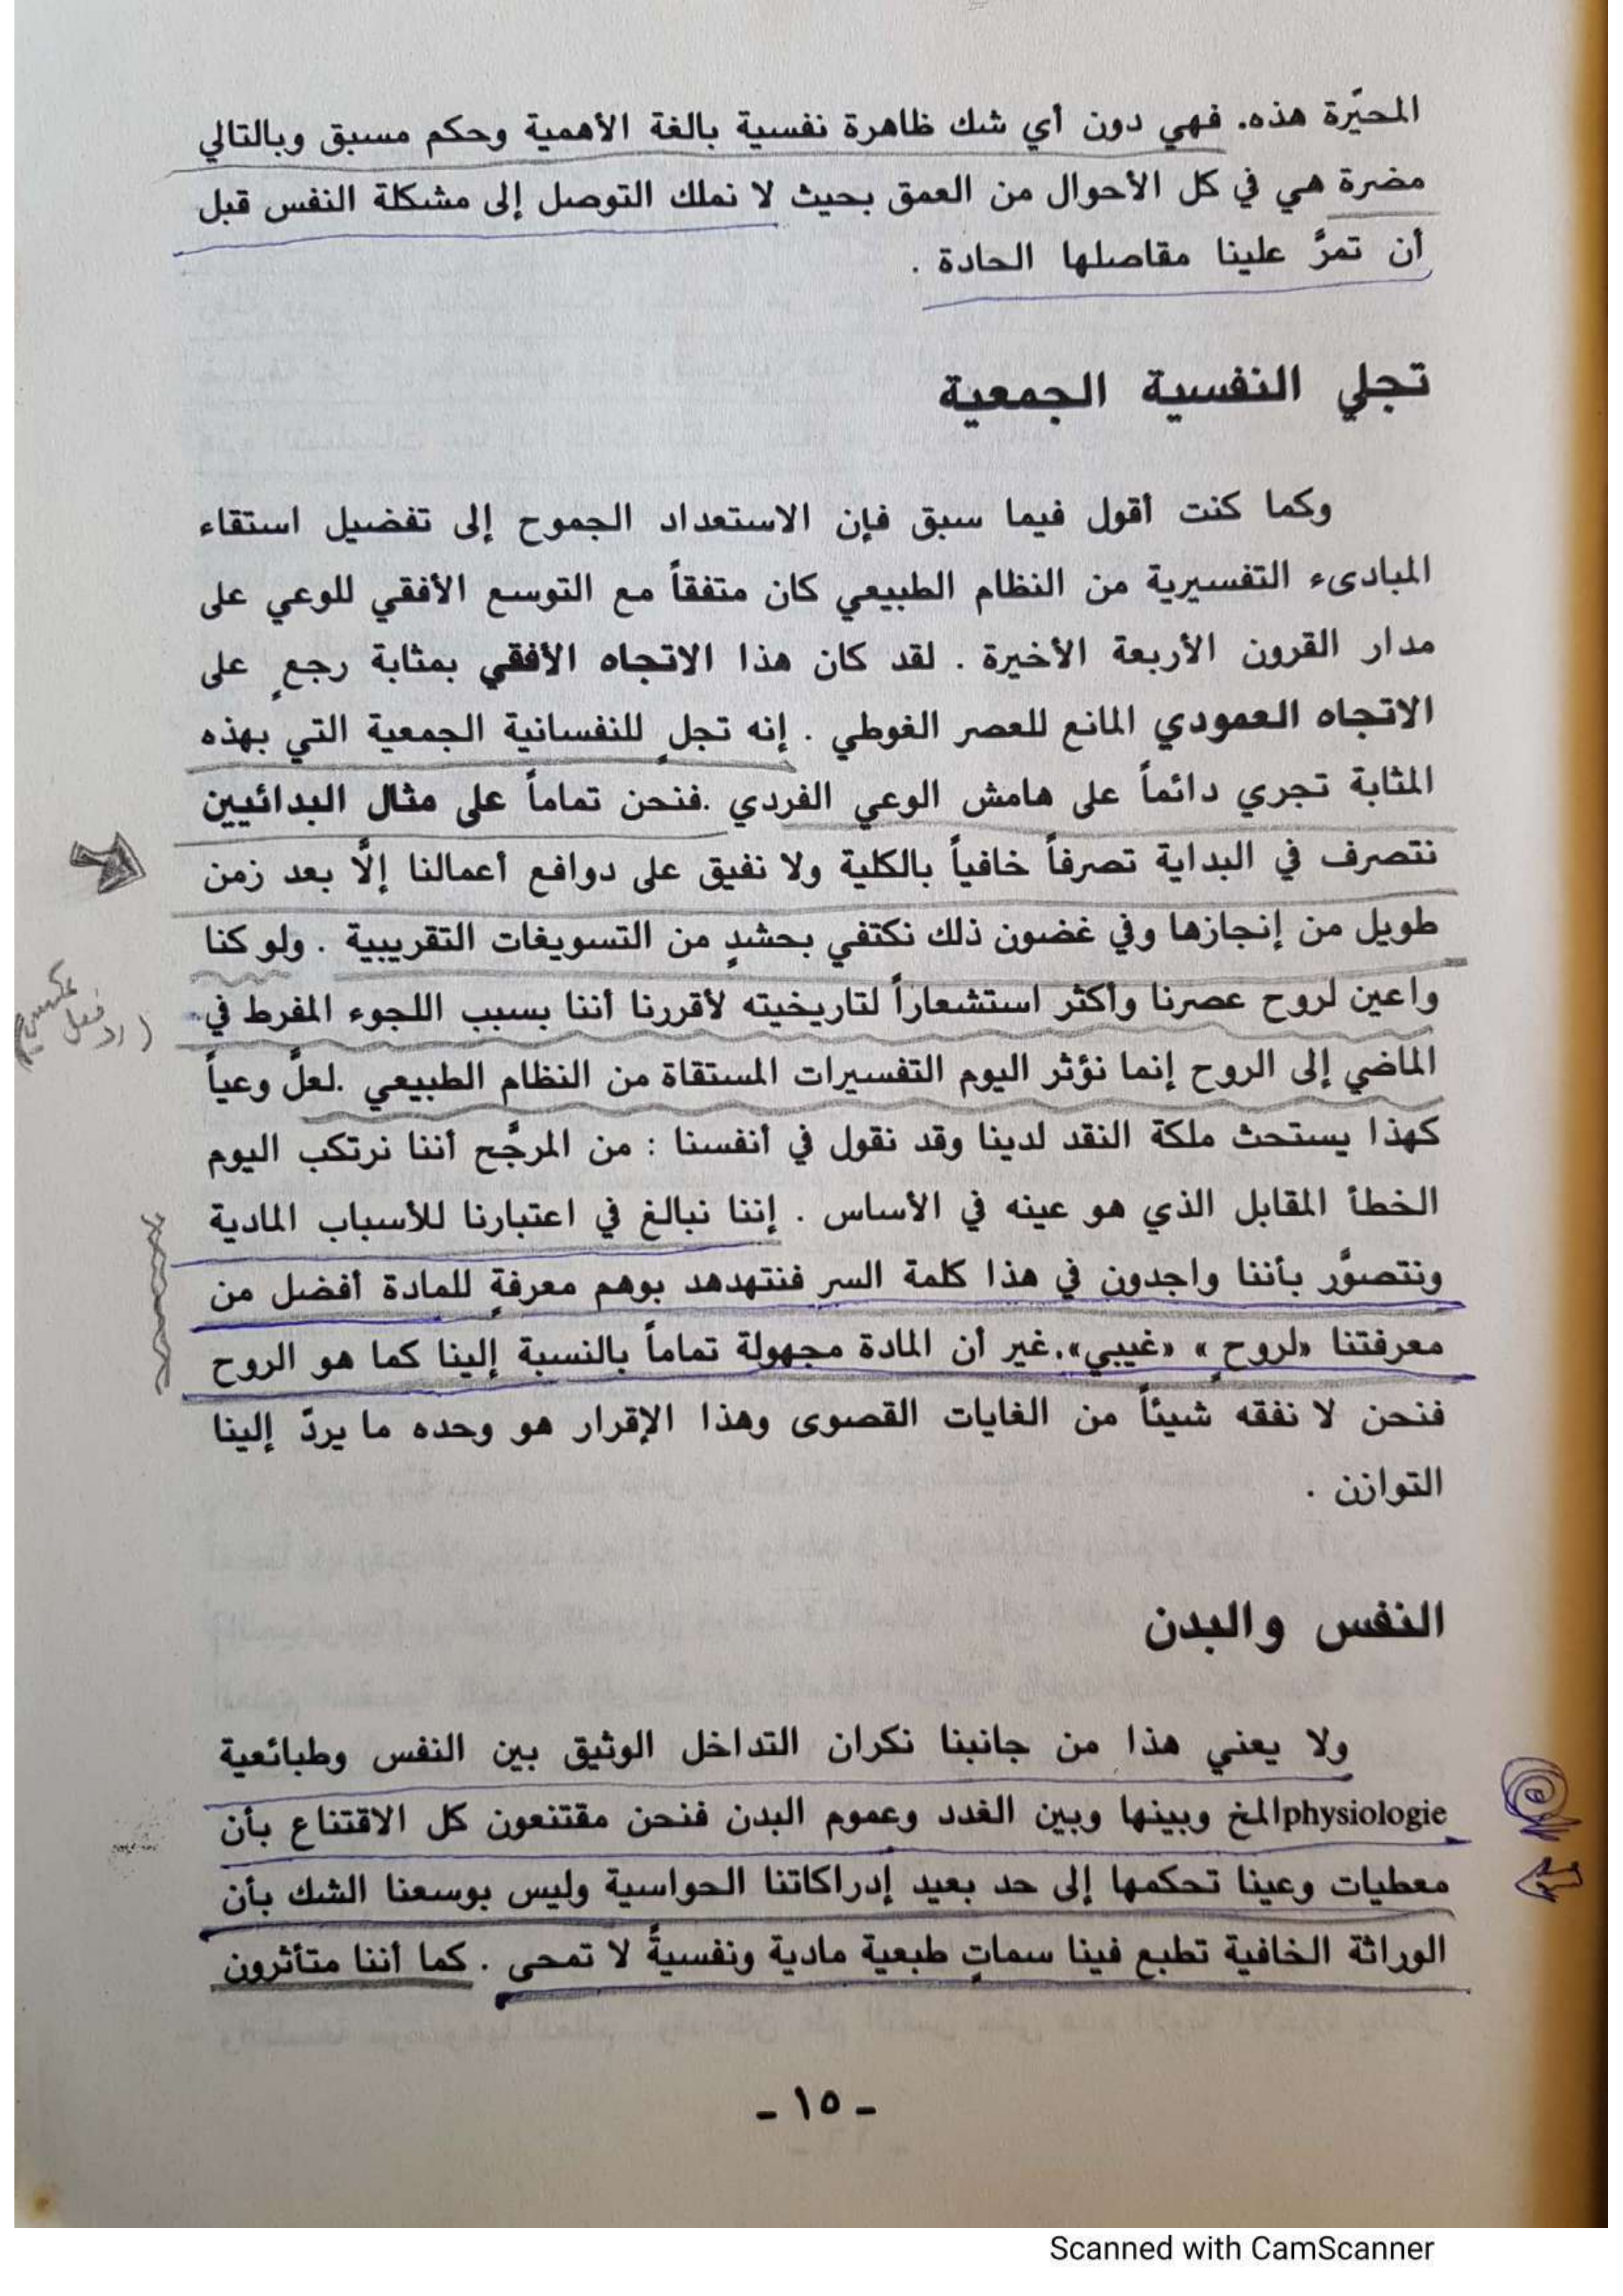 المحيّرة هذه. فهي دون أي شك ظاهرة نفسية بالغة الأهمية وحكم مسبق وبالتالي
مضرة هي في كل الأحوال من العمق بحيث لا نملك التوصل إلى مشكلة النفس قبل
أن تمرَّ علينا مقاصلها الحادة .
تجلي النفسية الجمعية
وكما كنت أقول فيما سبق فإن الاستعداد الجموح إلى تفضيل استقاء
المبادىء التفسيرية من النظام الطبيعي كان متفقاً مع التوسع الأفقي للوعي على
مدار القرون الأربعة الأخيرة . لقد كان هذا الاتجاه الأفقي بمثابة رجعٍ على
الاتجاه العمودي المانع للعصر الغوطي . إنه تجلٍ للنفسانية الجمعية التي بهذه
المثابة تجري دائماً على هامش الوعي الفردي .فنحن تماماً على مثال البدائيين
نتصرف في البداية تصرفاً خافياً بالكلية ولا نفيق على دوافع أعمالنا إلَّا بعد زمن
طويل من إنجازها وفي غضون ذلك نكتفي بحشدٍ من التسويغات التقريبية . ولو كنا
واعين لروح عصرنا وأكثر استشعاراً لتاريخيته لأقررنا أننا بسبب اللجوء المفرط في
(رد فعل عكسي)
الماضي إلى الروح إنما نؤثر اليوم التفسيرات المستقاة من النظام الطبيعي .لعلَّ وعياً
كهذا يستحث ملكة النقد لدينا وقد نقول في أنفسنا : من المرجَّح أننا نرتكب اليوم
الخطأ المقابل الذي هو عينه في الأساس . إننا نبالغ في اعتبارنا للأسباب المادية
ونتصوَّر بأننا واجدون في هذا كلمة السر فنتهدهد بوهم معرفةٍ للمادة أفضل من
معرفتنا «لروحٍ » «غيبي».غير أن المادة مجهولة تماماً بالنسبة إلينا كما هو الروح
فنحن لا نفقه شيئاً من الغايات القصوى وهذا الإقرار هو وحده ما يردّ إلينا
التوازن .
النفس والبدن
ولا يعني هذا من جانبنا نكران التداخل الوثيق بين النفس وطبائعية
physiologieالمخ وبينها وبين الغدد وعموم البدن فنحن مقتنعون كل الاقتناع بأن
معطيات وعينا تحكمها إلى حد بعيد إدراكاتنا الحواسية وليس بوسعنا الشك بأن
الوراثة الخافية تطبع فينا سماتٍ طبعية مادية ونفسيةً لا تمحى . كما أننا متأثرون
- ١٥ -
Scanned with CamScanner